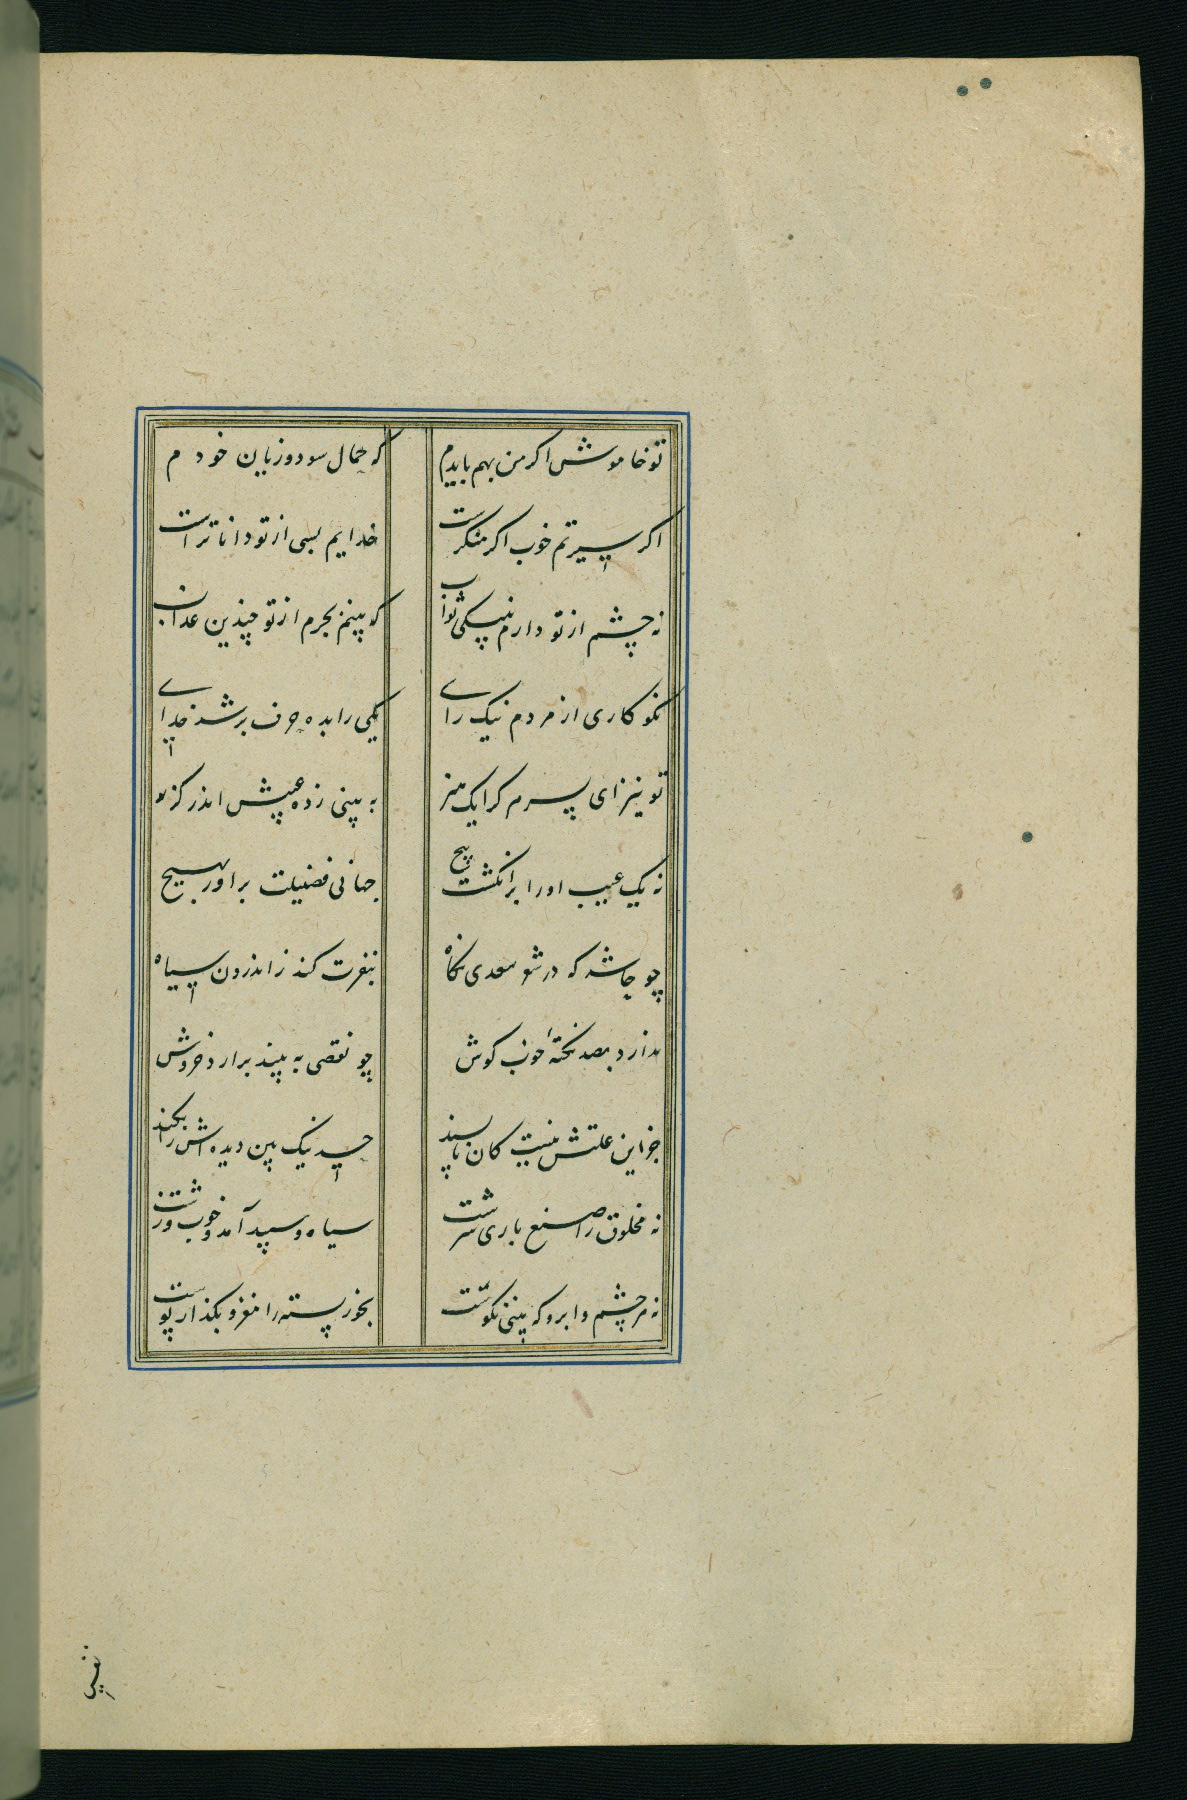 تو خاموش اگر من بهم یا بدم که حمال سود و زیان خودم
اگر سیرتم خوب اگر منکرست خدایم بسی از تو داناترست
نه چشم از تو دارم بنیکی ثواب که بینم بجرم از تو چندین عذاب
نکوکاری از مردم نیک رای یکی را بده حرف برشد خدای
تو نیز ای پسر هر کرا یک هنر به بینی ز ده عیبش اندر گذر
نه یک عیب او را بر انگشت پیچ جهانی فضیلت براور بهیچ
چو جاشد که در شعر سعدی نگاه بنفرت کند ز اندرون سیاه
ندارد بصد نکته خوب گوش چو نقصی به بیند برارد خروش
جز این علتش نیست کان ناپسند حسد نیک بین دیده اش را بکند
نه مخلوق را صنع باری سرشت سیاه و سپید آمد و خوب و زشت
نه هر چشم و ابرو که بینی نکوست بخور پسته را مغز و بگذار پوست